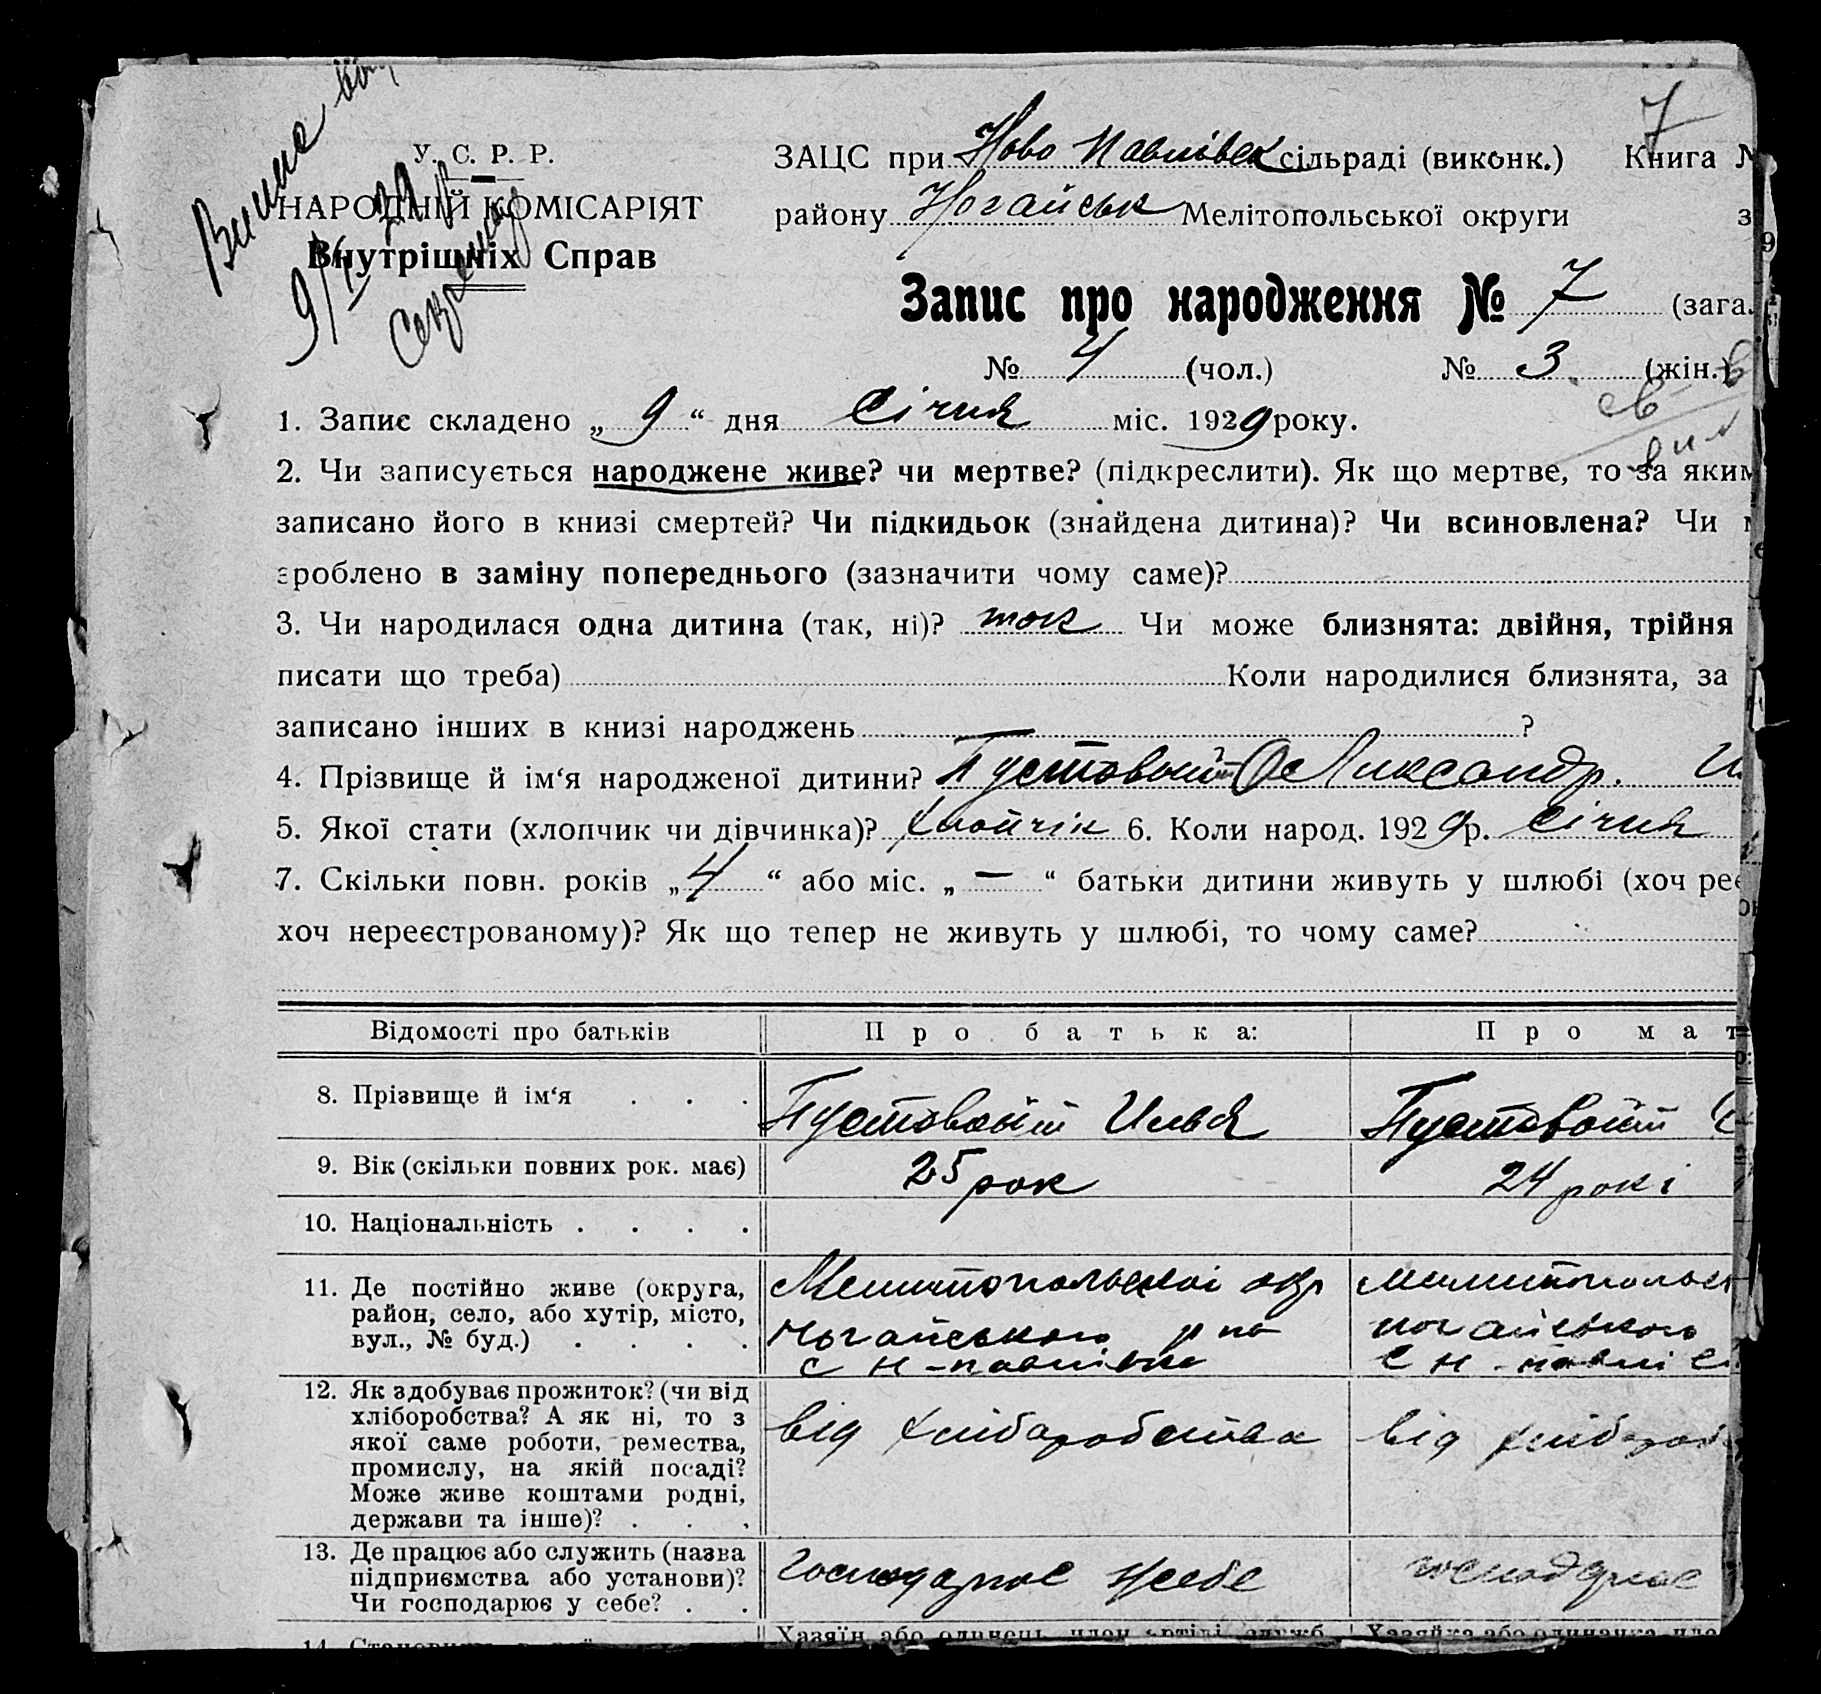 Виме
9/IV 29 р
Секретар
7
У. С. Р. Р.
НАРОДНІЙ КОМІСАРІЯТ
Внутрішніх Справ
ЗАЦС при Ново Павлівськ сільраді (виконк.) Книга №
району Ногайськ Мелітопольської округи з
Запис про народження № 7 (зага.
№ 4 (чол.) № 3 (жін.)
1. Запис складено „ 9 “ дня Січня міс. 1929 року.
2. Чи записується народжене живе? чи мертве? (підкреслити). Як що мертве, то за яким
записано його в книзі смертей? Чи підкидьок (знайдена дитина)? Чи всиновлена? Чи
зроблено в заміну попереднього (зазначити чому саме)?
3. Чи народилася одна дитина (так, ні)? так Чи може близнята: двійня, трійня
писати що треба) Коли народилися близнята, за
записано інших в книзі народжень ?
4. Прізвище й ім‘я народженої дитини? Пустовойт Александр. И
5. Якої стати (хлопчик чи дівчинка)? хлопчік 6. Коли народ. 1929 р. Січня
7. Скільки повн. років „ 4 “ або міс. „ — “ батьки дитини живуть у шлюбі (хоч реє
хоч нереєстрованому)? Як що тепер не живуть у шлюбі, то чому саме?
Відомості про батьків Про батька: Про мат
8. Прізвище й ім‘я . . . Пустовойт Илья Пустовойт
9. Вік (скільки повних рок. має) 25 рок 24 рокі
10. Національність . . . .
11. Де постійно живе (округа,
район, село, або хутір, місто,
вул., № буд.) . . . .
Мелитопольскоі окр
Ногайського р на
с Н-павлівка
Мелитопольск
ногайського
с Н-павлів
12. Як здобуває прожиток? (чи від
хліборобства? А як ні, то з
якої саме роботи, ремества,
промислу, на якій посаді?
Може живе коштами родні,
держави та інше)? . . .
від хлібаробства
від хлібароб
13. Де працює або служить (назва
підприємства або установи)?
Чи господарює у себе? . .
господарює у себе
господарює
Хазяїн або одинець, член артілі, служб.
Хазяйка або одиначка, чле